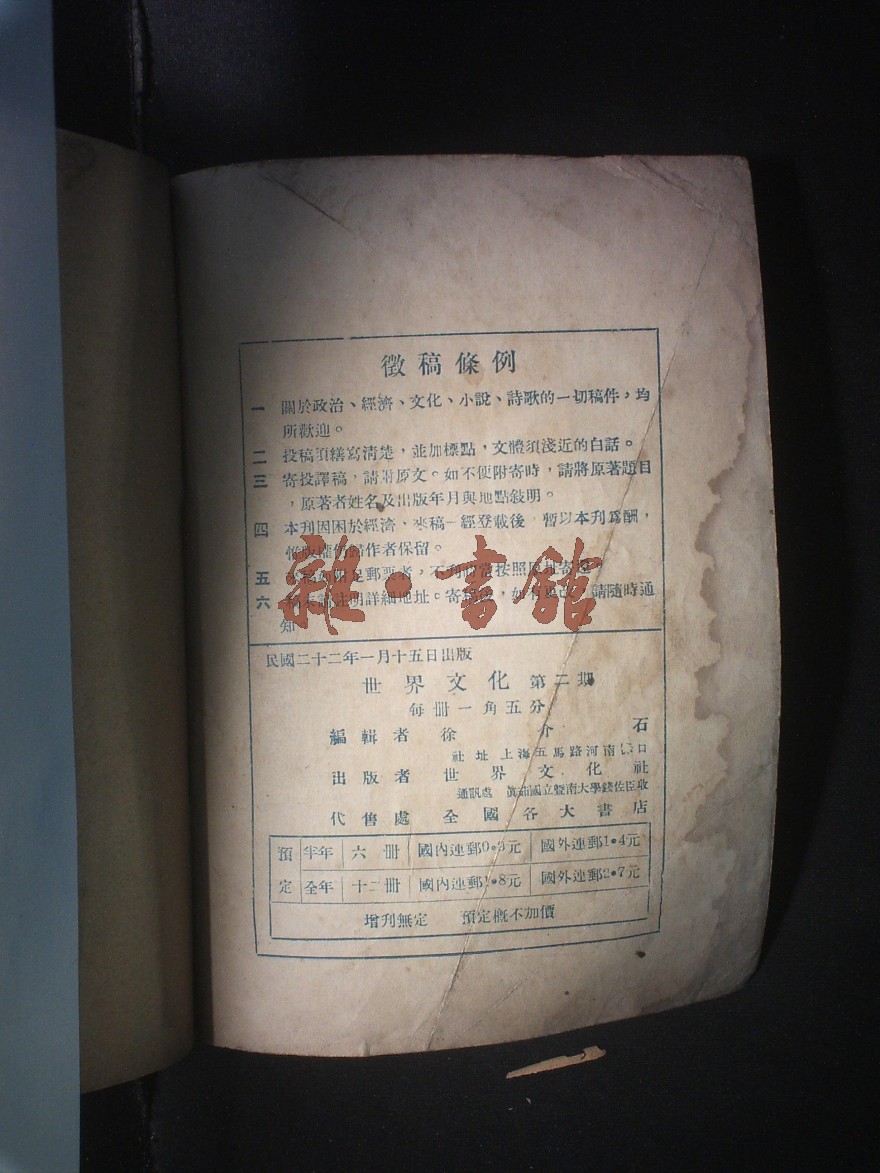 徵稿條例
一 關於政治、經濟、文化、小說、詩歌的一切稿件，均
所歡迎。
二 投稿須繕寫清楚，並加標點，文體須淺近的白話。
三 寄投譯稿，請附原文。如不便附寄時，請將原著題目
，原著者姓名及出版年月與地點敍明。
四 本刊因困於經濟、來稿一經登載後 暫以本刊爲酬，
版權仍歸作者保留。
五 附足郵票者，不刊時當按照原址寄
六 註明詳細地址。寄稿後，如有更改，請隨時通
知
雜·書館
民國二十二年一月十五日出版
世界文化 第二期
每冊一角五分
編輯者 徐介石
社址 上海五馬路河南路口
出版者 世界文化社
通訊處 眞茹國立暨南大學錢佐臣收
代售處 全國各大書店
預定 半年 六冊 國內連郵0·9元 國外連郵1·4元
全年 十二冊 國內連郵1·8元 國外連郵2·7元
增刊無定 預定概不加價